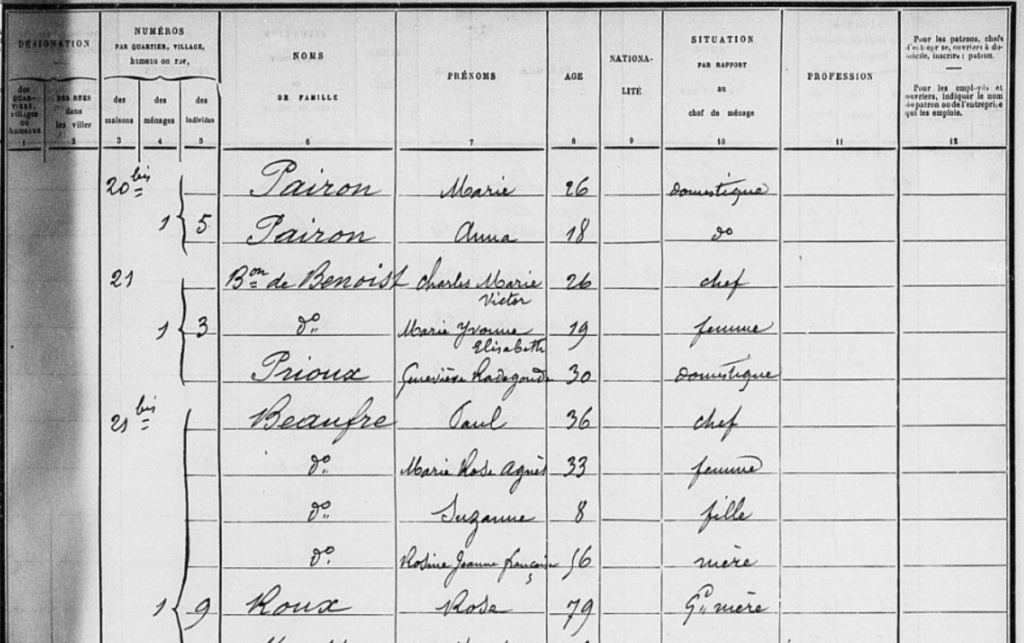 DÉSIGNATION
NUMÉROS
PAR QUARTIER, VILLAGE,
hameau ou rue,
des QUARTIERS, villages ou hameaux
DES RUES dans les villes
des maisons
des ménages
des individus
NOMS
DE FAMILLE
PRÉNOMS
AGE
NATIONALITÉ
SITUATION
PAR RAPPORT
au
chef de ménage
PROFESSION
Pour les patrons, chefs
d'entreprise, ouvriers à domicile, inscrire : patron.
Pour les employés et
ouvriers, indiquer le nom
du patron ou de l'entreprise
qui les emploie.
1 2 3 4 5 6 7 8 9 10 11 12
20 bis Pairon Marie 26 domestique
1 5 Pairon Anna 18 do
21 Bon de Benoist Charles Marie 26 chef
Victor
1 3 do Marie Yvonne 19 femme
Elisabeth
Prioux Geneviève Radegonde 30 domestique
21 bis Beaufre Paul 36 chef
do Marie Rose Agnès 33 femme
do Suzanne 8 fille
do Rosine Jeanne françoise 56 mère
1 9 Roux Rose 79 Gd mère